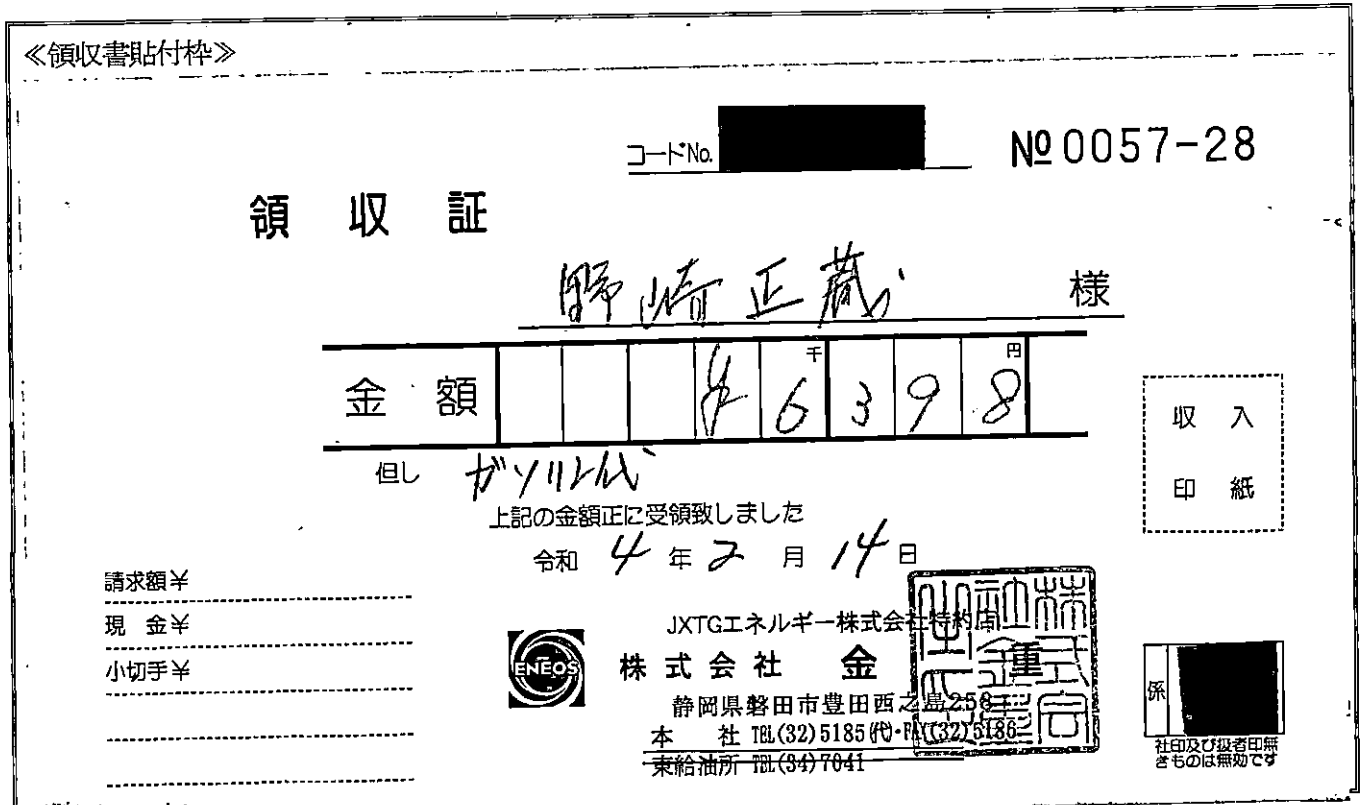 ≪領収書貼付枠≫
コードNo.
№0057-28
領収証
野崎正蔵 様
金額 ¥6千398円
但し ガソリン代
上記の金額正に受領致しました
令和4年2月14日
請求額¥
現金¥
小切手¥
収入
印紙
ENEOS
JXTGエネルギー株式会社特約店
株式会社 金重
静岡県磐田市豊田西之島256
本社 TEL(32)5185(代)・FAX(32)5186
東給油所 TEL(34)7041
係
社印及び扱者印無
きものは無効です